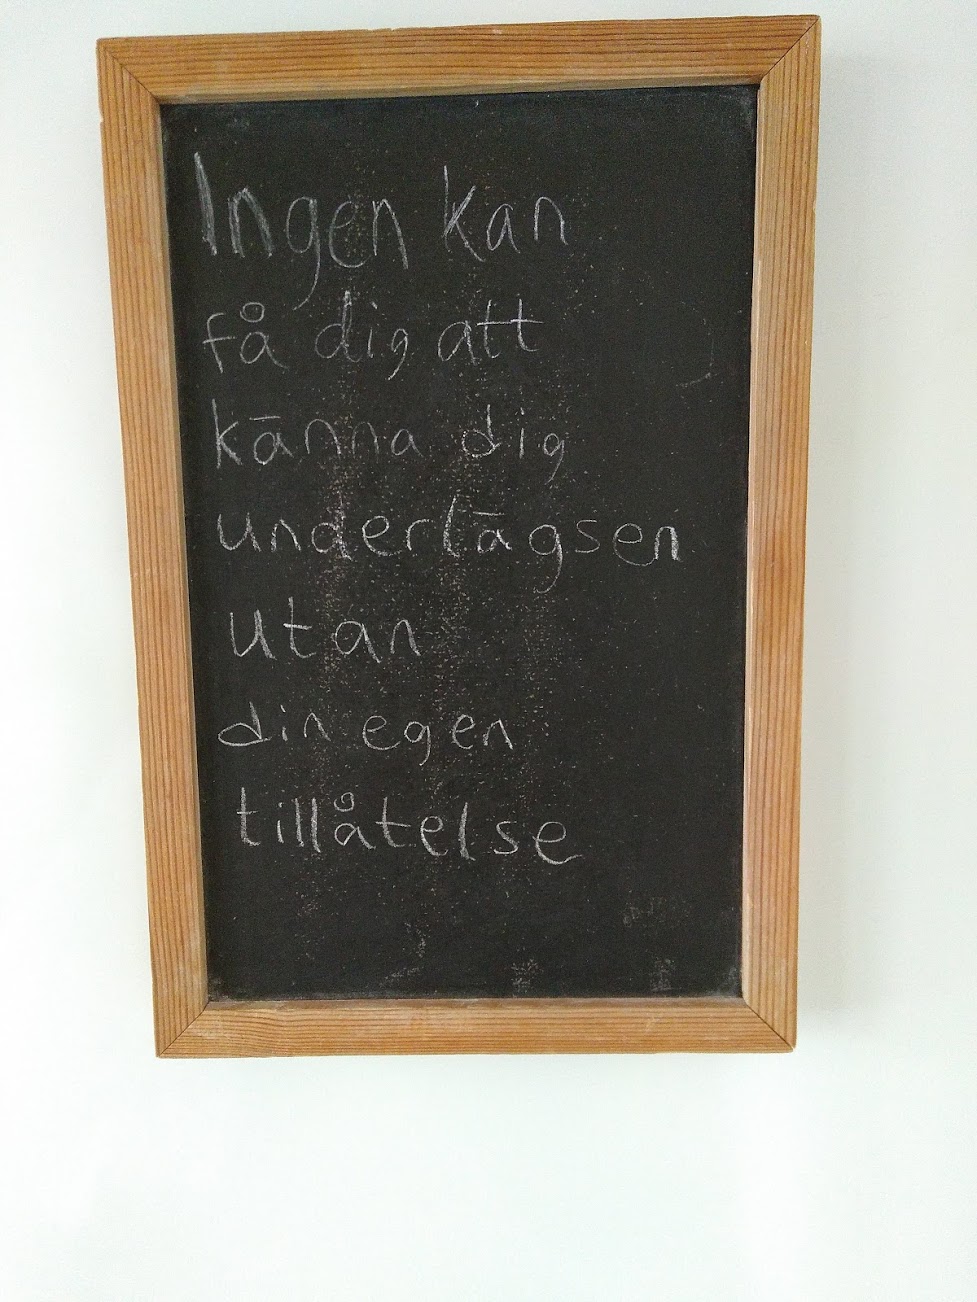 Ingen kan
få dig att
känna dig
underlägsen
utan
din egen
tillåtelse